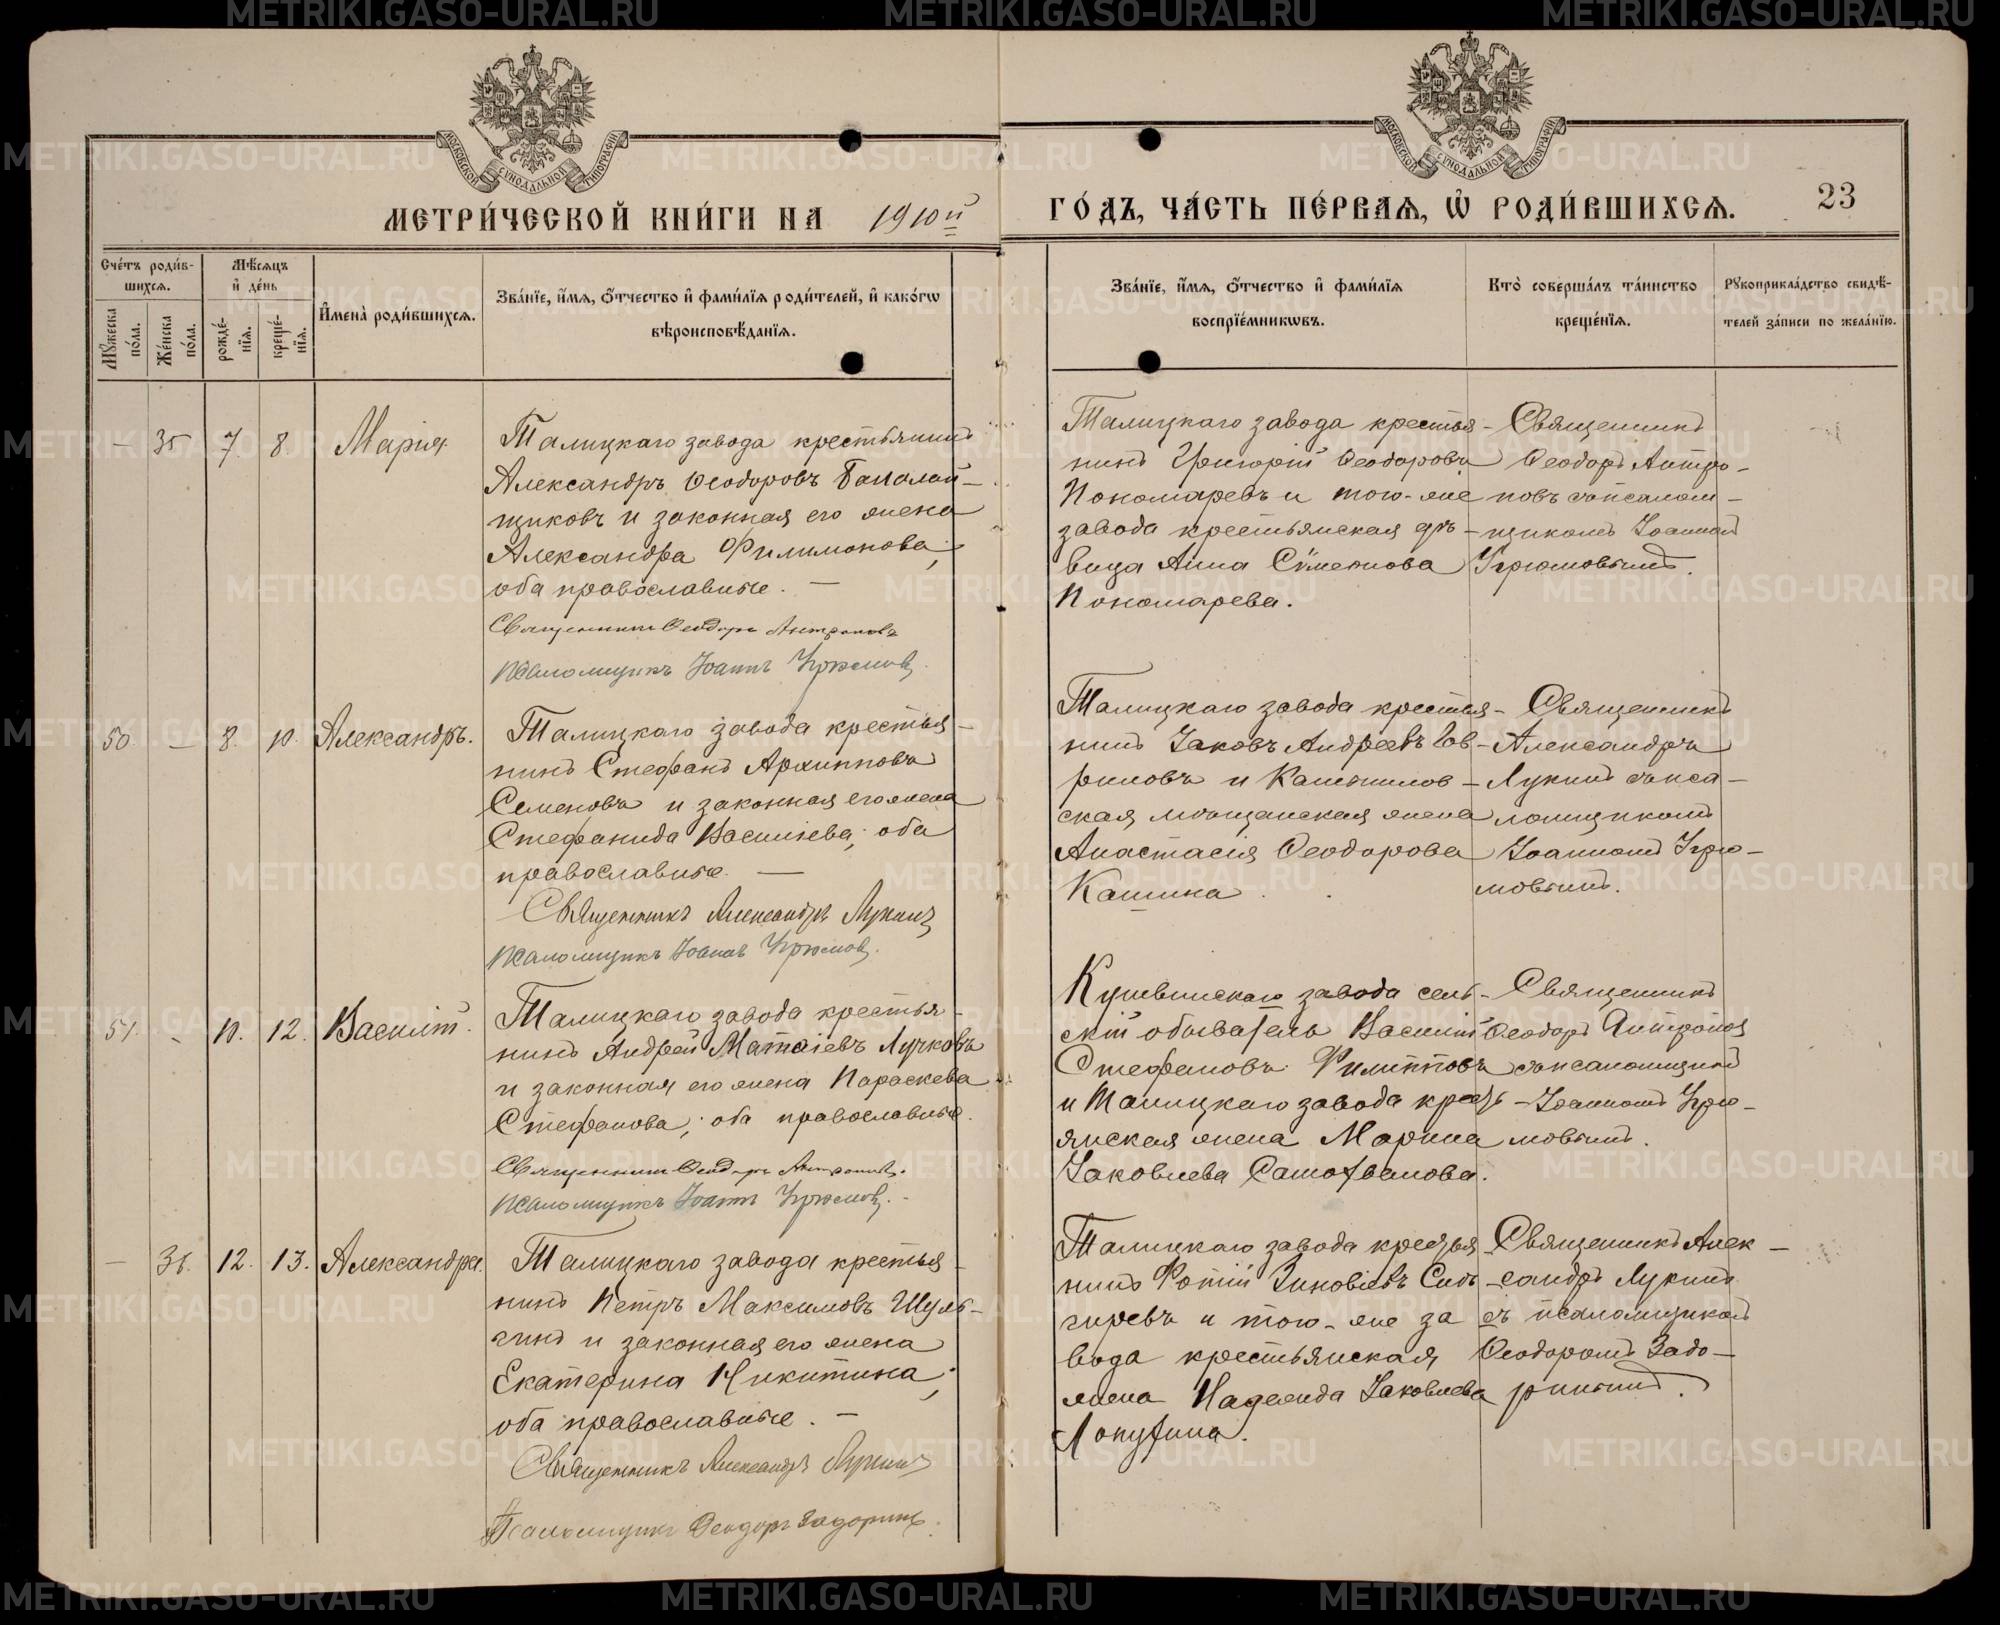 МЕТРИ́ЧЕСКОЙ КНИ́ГИ НА 1910й
ГО́ДЪ, ЧА́СТЬ ПЕ́РВАѦ, Ѡ РОДИ́ВШИХСѦ.
23
Сче́тъ роди́в-
шихсѧ.
Мꙋ́жеска по́ла.
Же́нска по́ла.
Мѣ́сѧцъ
и҆ де́нь
рожде́нїѧ.
креще́нїѧ.
И҆мена̀ роди́вшихсѧ.
Зва́нїе, и҆́мѧ, ѻ҆́тчество и҆ фами́лїѧ роди́телей, и҆ како́гѡ
вѣроисповѣ́данїѧ.
Зва́нїе, и҆́мѧ, ѻ҆́тчество и҆ фами́лїѧ
воспрїе́мникѡвъ.
Кто̀ соверша́лъ та́инство
креще́нїѧ.
Рꙋкоприкла́дство свидѣ́-
телей за́писи по жела́нїю.
— 35 7. 8. Марія
Талицкаго завода крестьянинъ
Александръ Ѳеодоровъ Балалай-
щиковъ и законная его жена
Александра Филимонова,
оба православные. —
Священникъ Ѳеодоръ Антроповъ
Псаломщикъ Іоаннъ Угрюмовъ.
Талицкаго завода крестья-
нинъ Григорій Ѳеодоровъ
Пономаревъ и того-же
завода крестьянская дѣ-
вица Анна Сѵмеонова
Пономарева.
Священникъ
Ѳеодоръ Антро-
повъ съ псалом-
щикомъ Іоанном
Угрюмовымъ.
50. — 8. 10. Александръ.
Талицкаго завода крестья-
нинъ Стефанъ Архипповъ
Семеновъ и законная его жена
Стефанида Васильева; оба
православные. —
Священникъ Александръ Лукинъ
Псаломщикъ Іоаннъ Угрюмовъ.
Талицкаго завода крестья-
нинъ Іаковъ Андреевъ Гав-
риловъ и Камышлов-
ская мѣщанская жена
Анастасія Ѳеодорова
Кашина.
Священникъ
Александръ
Лукинъ съ пса-
ломщикомъ
Іоанномъ Угрю-
мовымъ.
51. - 10. 12. Василій.
Талицкаго завода крестья-
нинъ Андрей Матѳіевъ Лучковъ
и законная его жена Параскева
Стефанова; оба православные.
Священникъ Ѳеодоръ Антроповъ.
Псаломщикъ Іоаннъ Угрюмовъ.
Кушвинскаго завода сель-
скій обыватель Василій
Стефановъ Филипповъ
и Талицкаго завода кресть-
янская жена Марина
Іаковлева Самохвалова.
Священникъ
Ѳеодоръ Антропов
съ псаломщикомъ
Іоанномъ Угрю-
мовымъ.
— 36. 12. 13. Александра.
Талицкаго завода крестья-
нинъ Петръ Максимовъ Шуль-
гинъ и законная его жена
Екатерина Никитина;
оба православные. —
Священникъ Александръ Лукинъ
Псаломщикъ Ѳеодоръ Задоринъ.
Талицкаго завода крестья-
нинъ Фотій Зиновіевъ
и того-же за
вода крестьянская
жена Надежда Іаковлева
Лопухина.
Священникъ Алек-
сандръ Лукинъ
съ псаломщикомъ
Ѳеодоромъ Задо-
ринымъ.